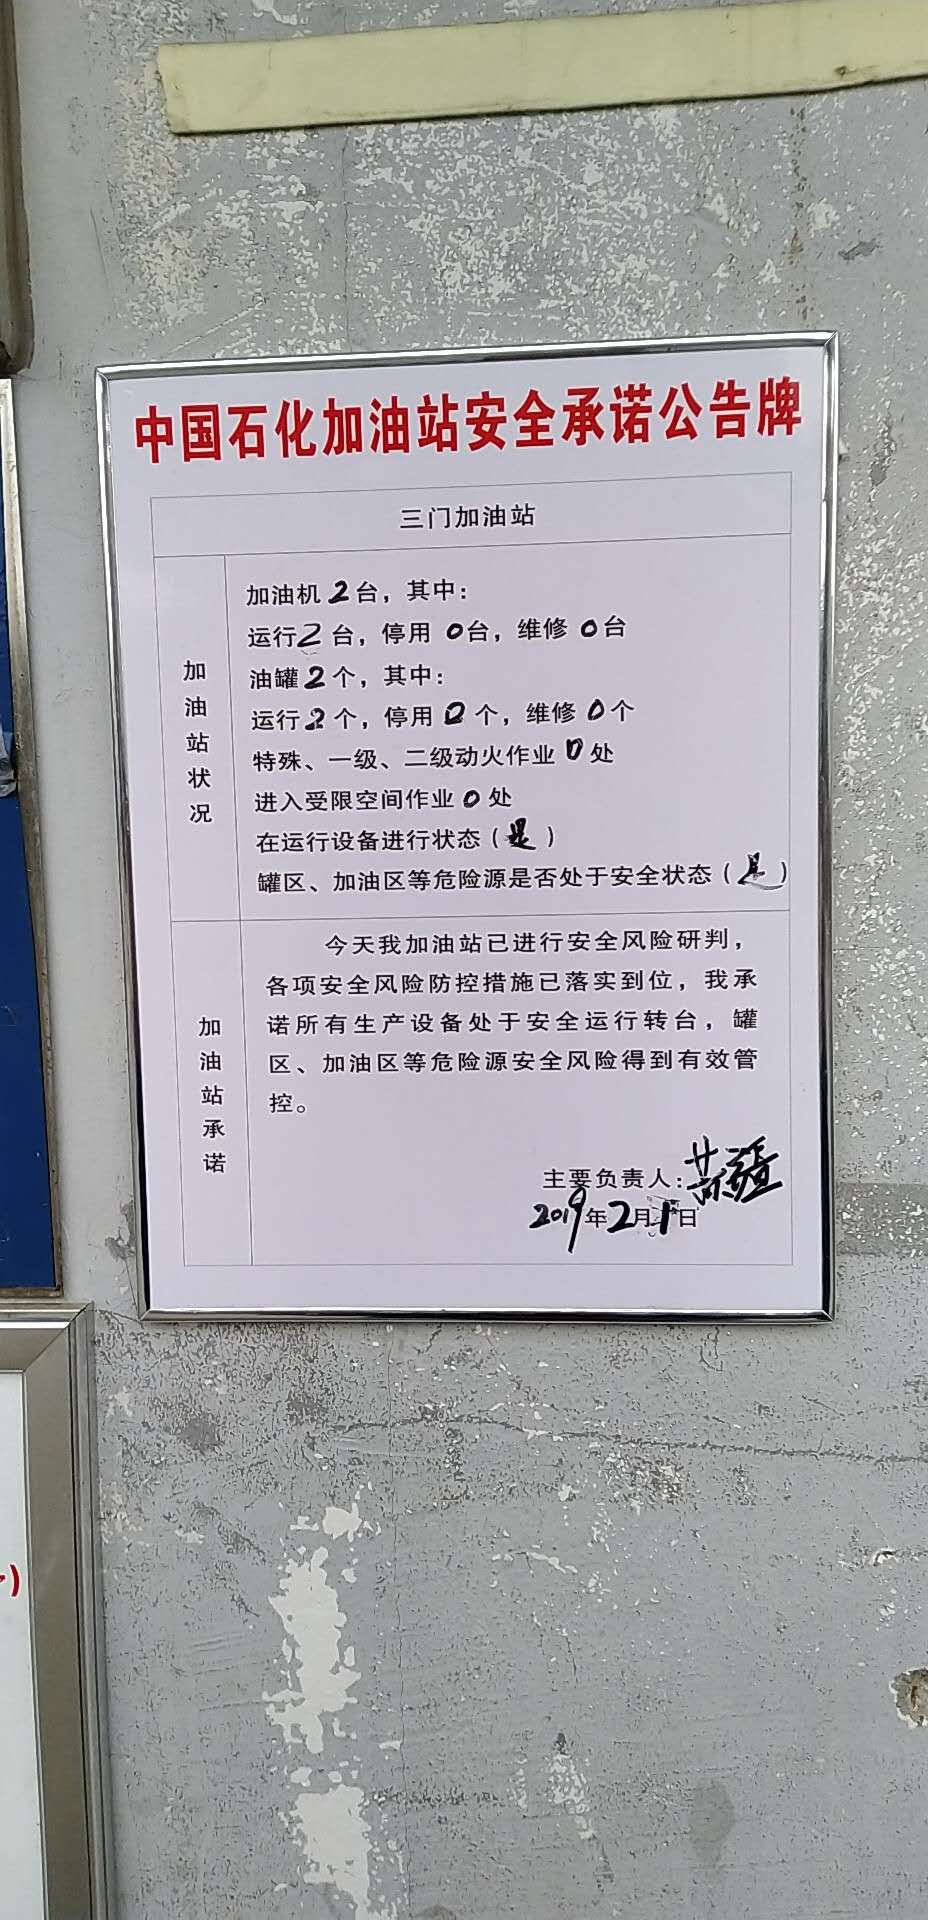 中国石化加油站安全承诺公告牌
三门加油站
加油站状况
加油机2台，其中：
运行2台，停用0台，维修0台
油罐2个，其中：
运行2个，停用0个，维修0个
特殊、一级、二级动火作业0处
进入受限空间作业0处
在运行设备进行状态（是）
罐区、加油区等危险源是否处于安全状态（是）
加油站承诺
今天我加油站已进行安全风险研判，
各项安全风险防控措施已落实到位，我承
诺所有生产设备处于安全运行转台，罐
区、加油区等危险源安全风险得到有效管
控。
主要负责人：
2019年2月1日